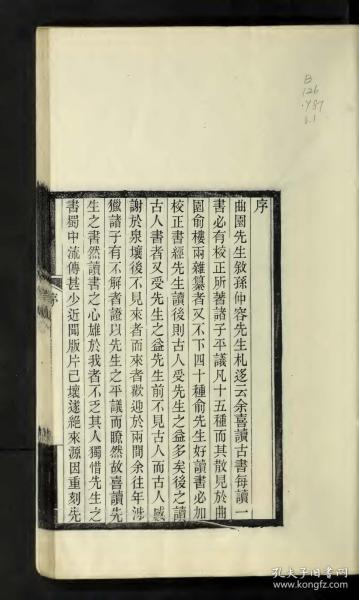 序
曲園先生敘孫仲容先生札迻云余喜讀古書每讀一
書必有校正所著諸子平議凡十五種而其散見於曲
園俞樓兩雜纂者又不下四十種俞先生好讀書必加
校正書經先生讀後則古人受先生之益多矣後之讀
古人書者又受先生之益先生前不見古人而古人感
謝於泉壤後不見來者而來者歡迎於兩間余往年涉
獵諸子有不解者證以先生之平議而瞭然故喜讀先
生之書然讀書之心雄於我者不乏其人獨惜先生之
書蜀中流傳甚少近聞版片已壞遂絕來源因重刻先
序
B
126
.Y87
v.1
孔夫子旧书网